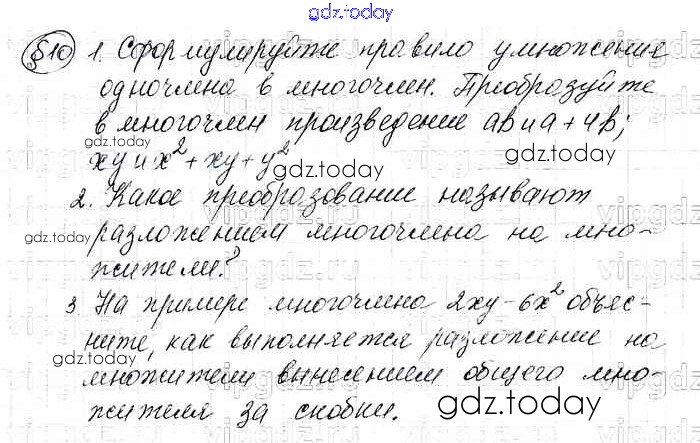 gdz.today
§10 1. Сформулируйте правило умножения
одночлена в многочлен. Преобразуйте
в многочлен произведение ab и a + 4b;
gdz.today
xy и x² + xy + y²
gdz.today
2. Какое преобразование называют
gdz.today
разложением многочлена на мно-
жители?
3 На примере многочлена 2xy - 6x² объяс-
ните, как выполняется разложение на
gdz.today
множители вынесением общего мно-
жителя за скобки.
gdz.today